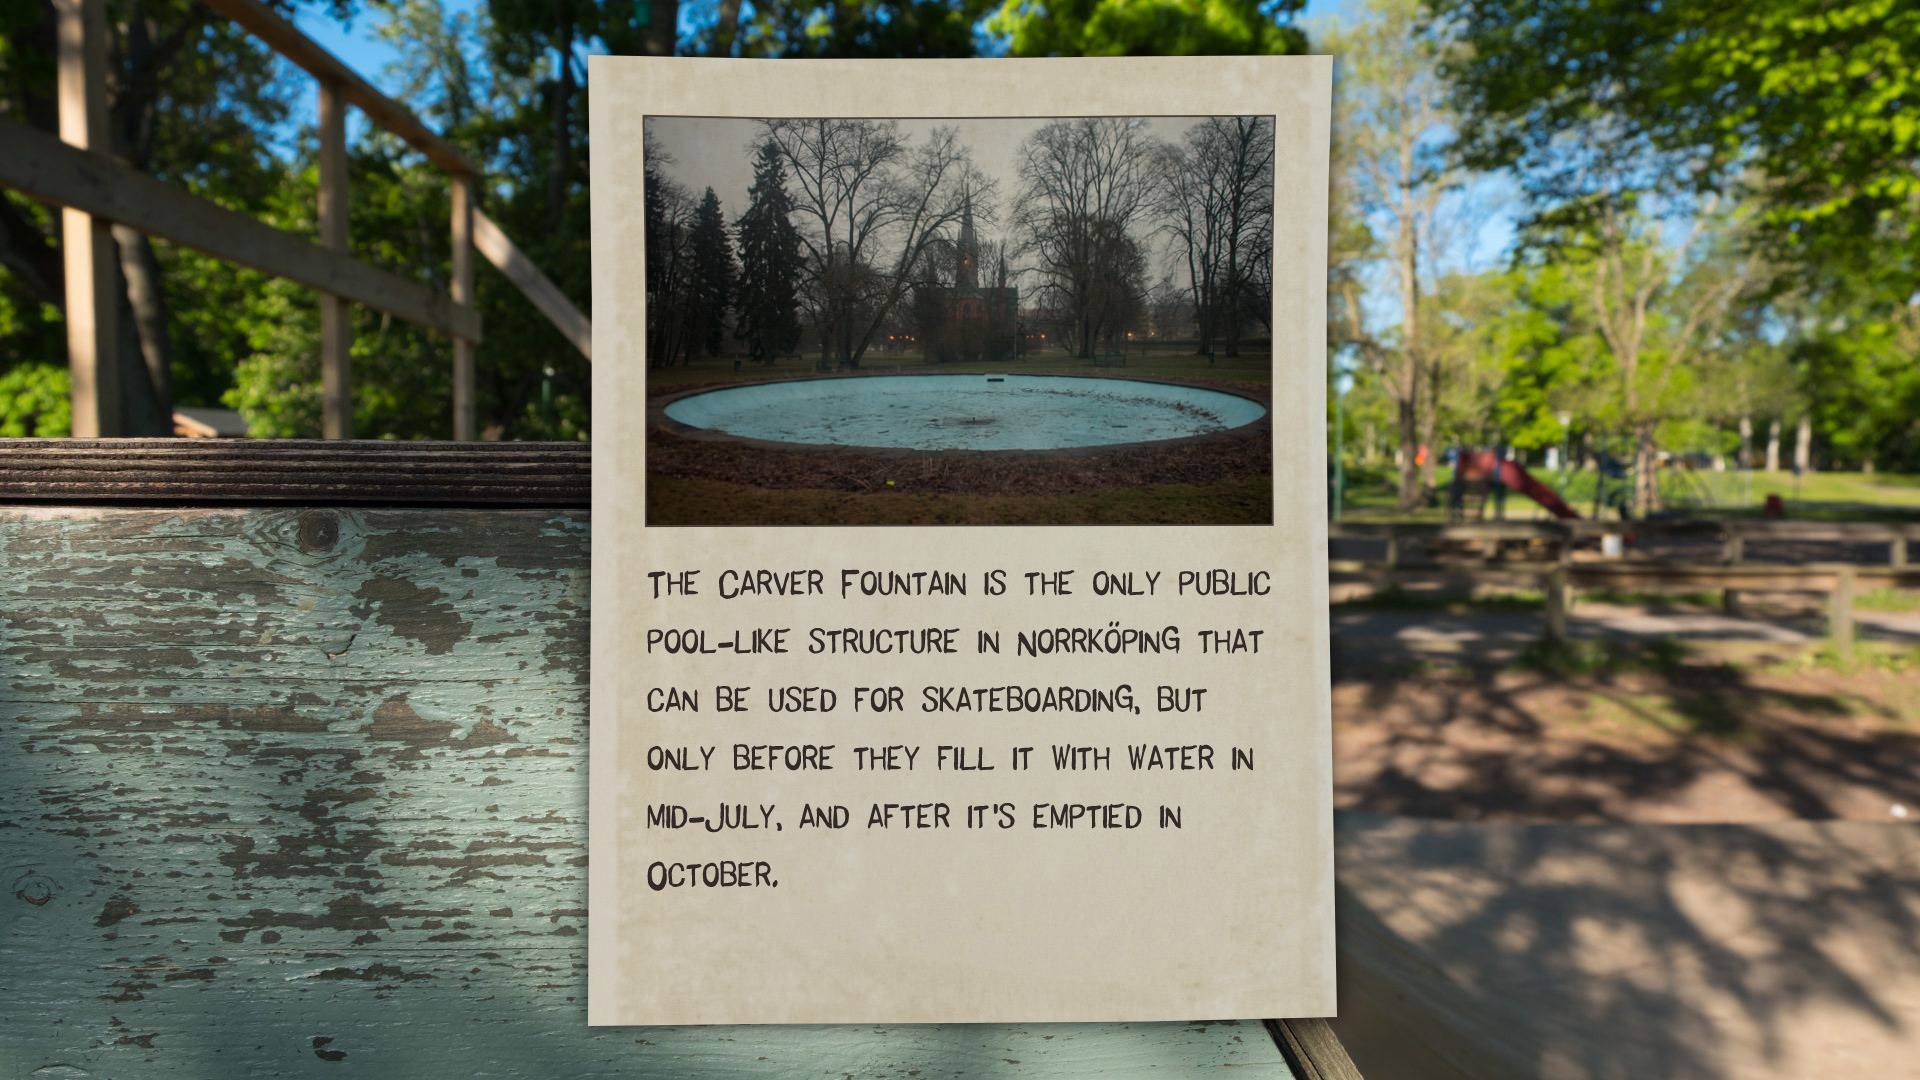 The Carver Fountain is the only public
pool-like structure in Norrköping that
can be used for skateboarding, but
only before they fill it with water in
mid-July, and after it's emptied in
October.